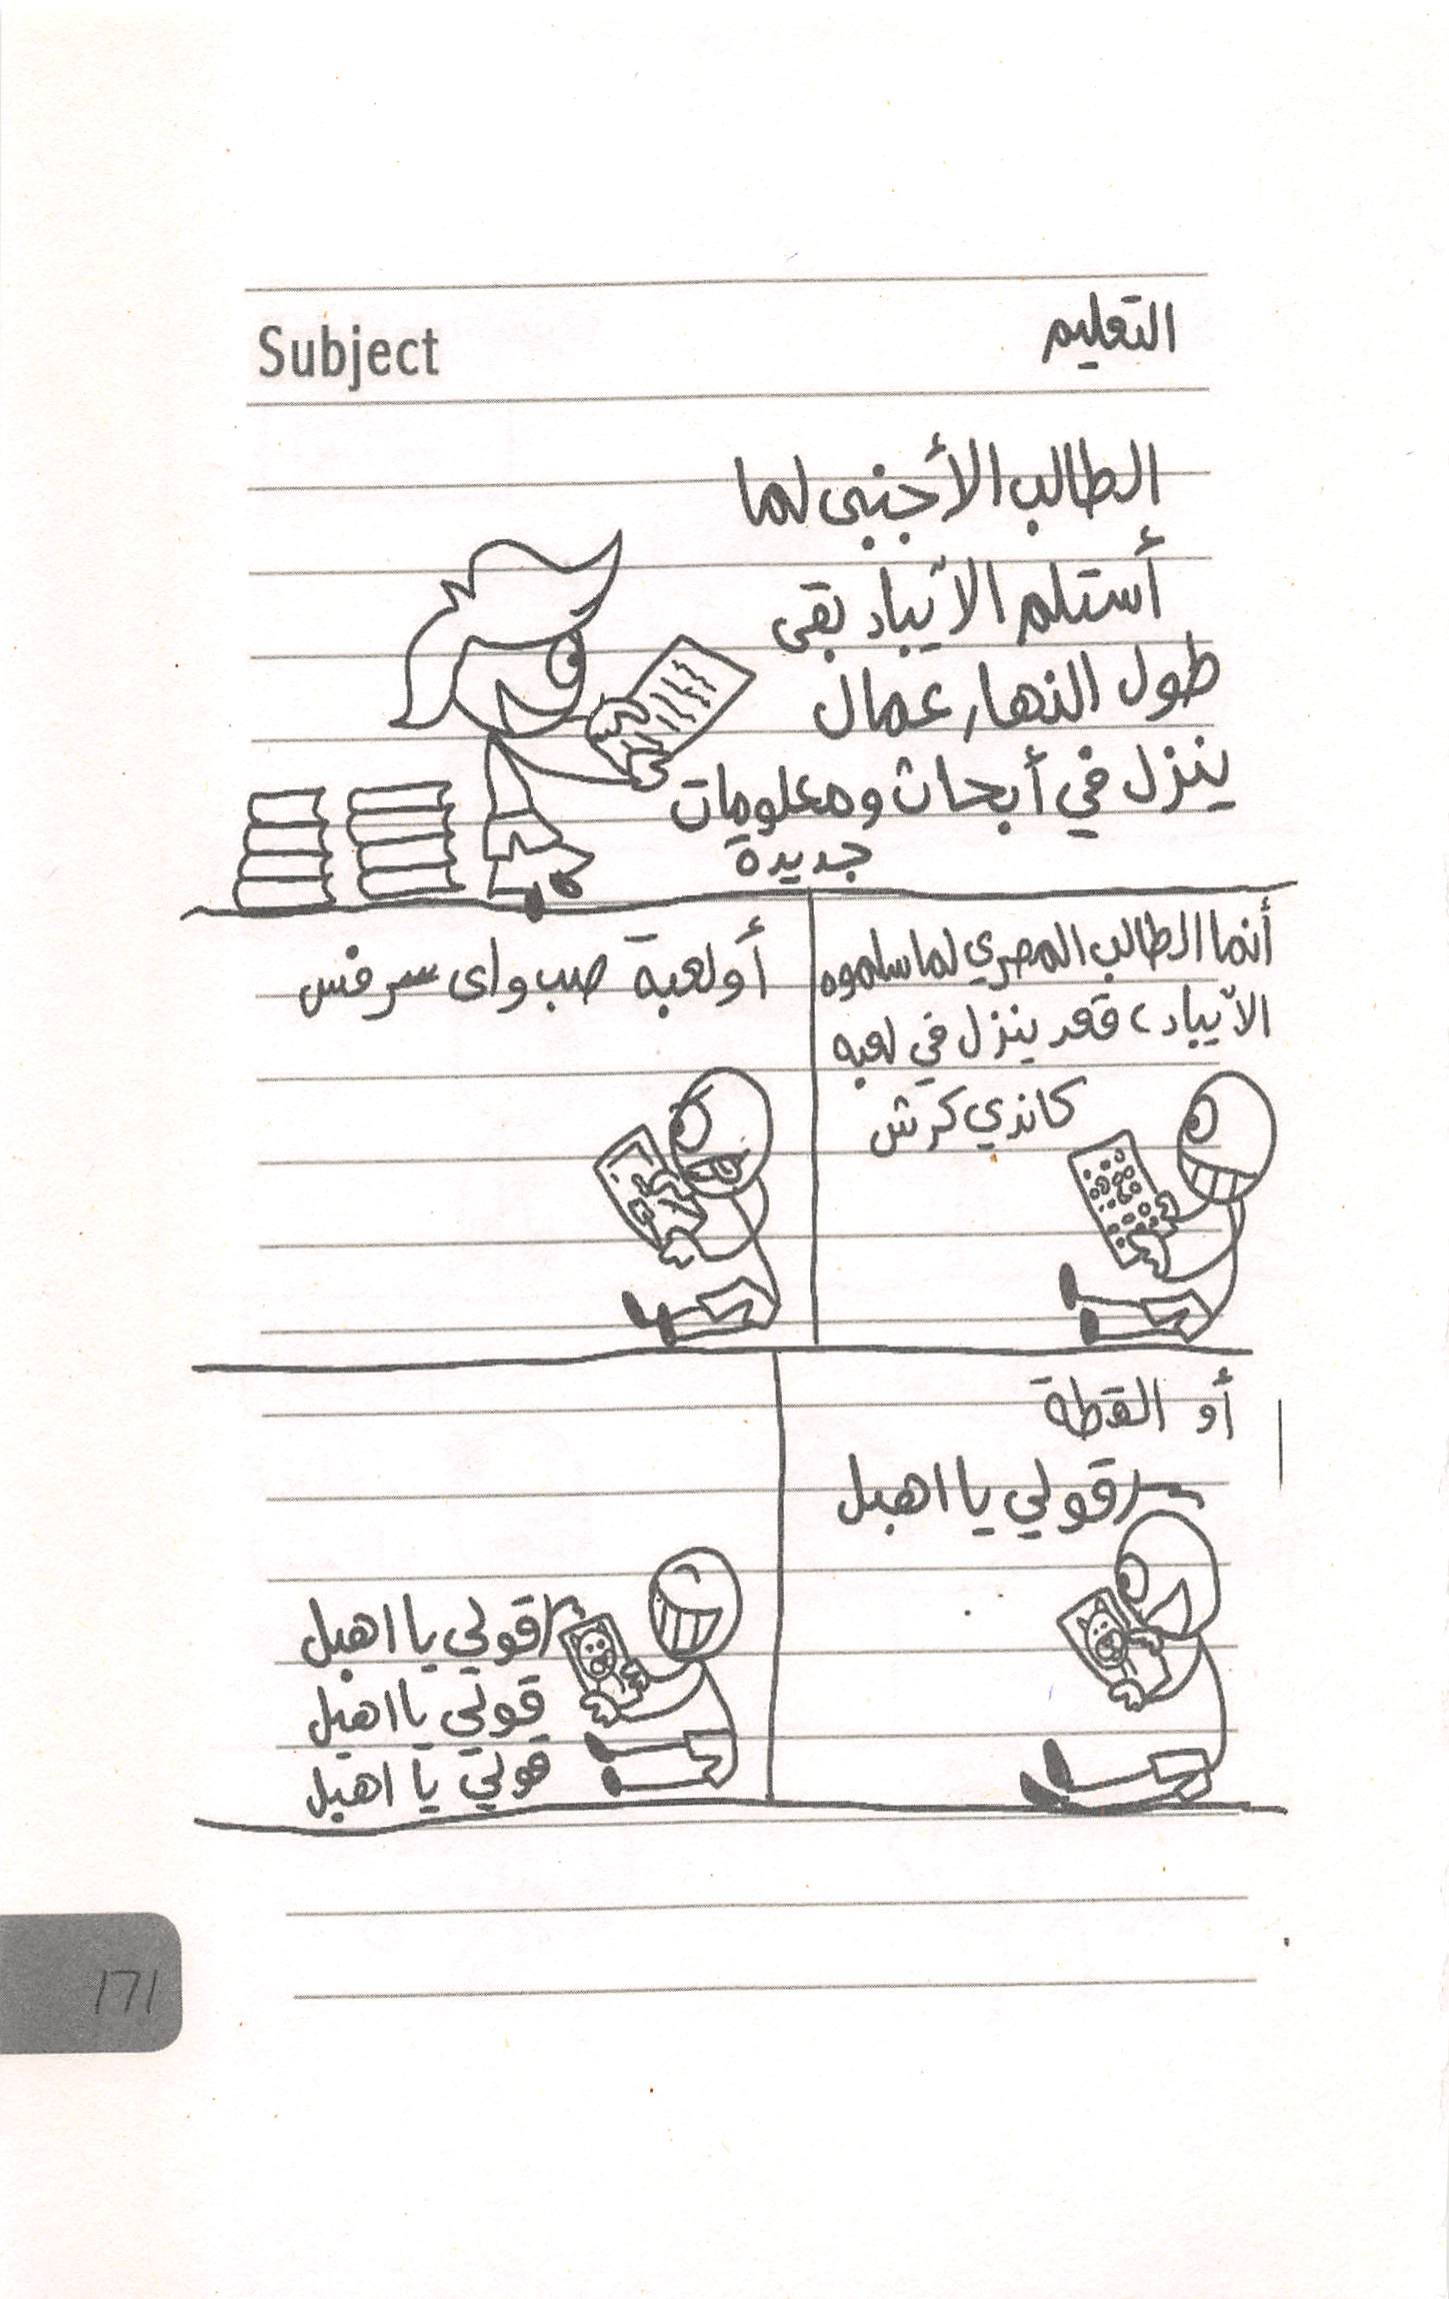 Subject
التعليم
الطالب الأجنبى لما
أستلم الآيباد بقى
طول النهار عمال
ينزل في أبحاث ومعلومات
جديدة
أنما الطالب المصري لما سلموه
الآيباد، قعد ينزل في لعبه
كاندي كرش
أو لعبة صب واى سرفس
أو القطة
قولي يا اهبل
قولي يا اهبل
قولي يا اهبل
قولي يا اهبل
171